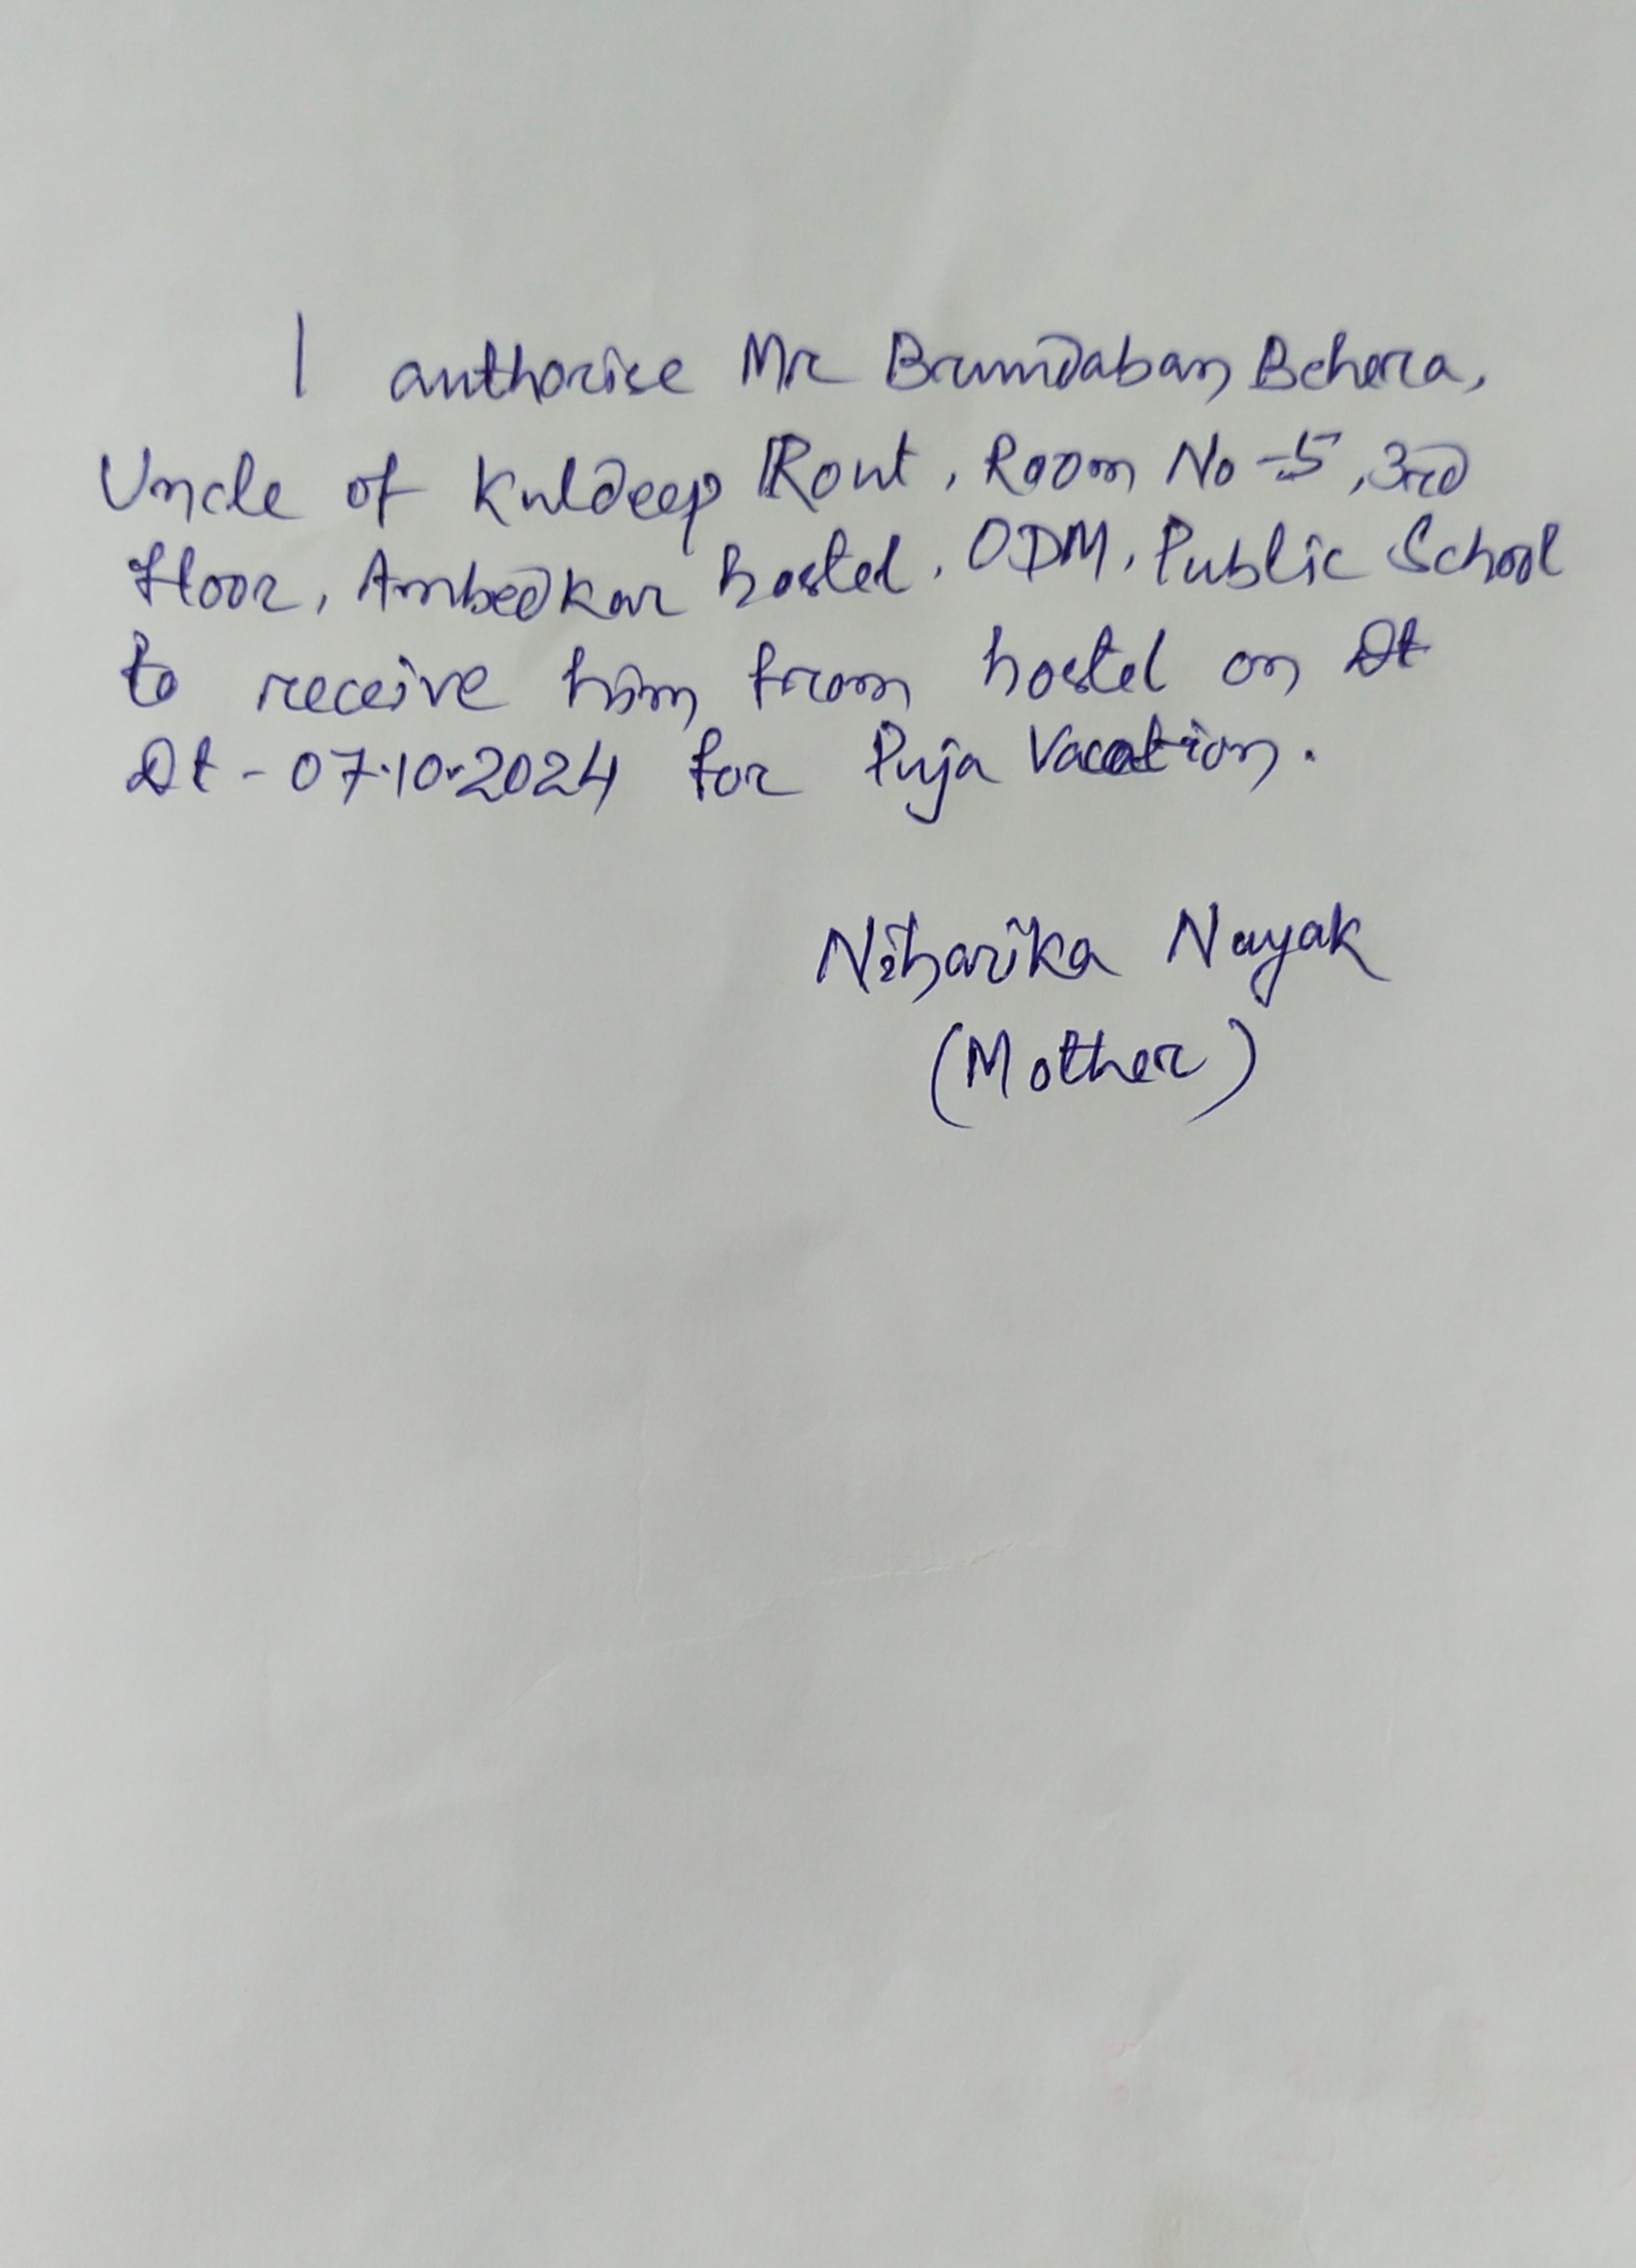 I authorise Mr Brundaban Behera,
Uncle of Kuldeep Rout, Room No-5, 3rd
floor, Ambedkar hostel, ODM, Public School
to receive him from hostel on Dt
Dt-07.10.2024 for Puja Vacation.
Niharika Nayak
(Mother)